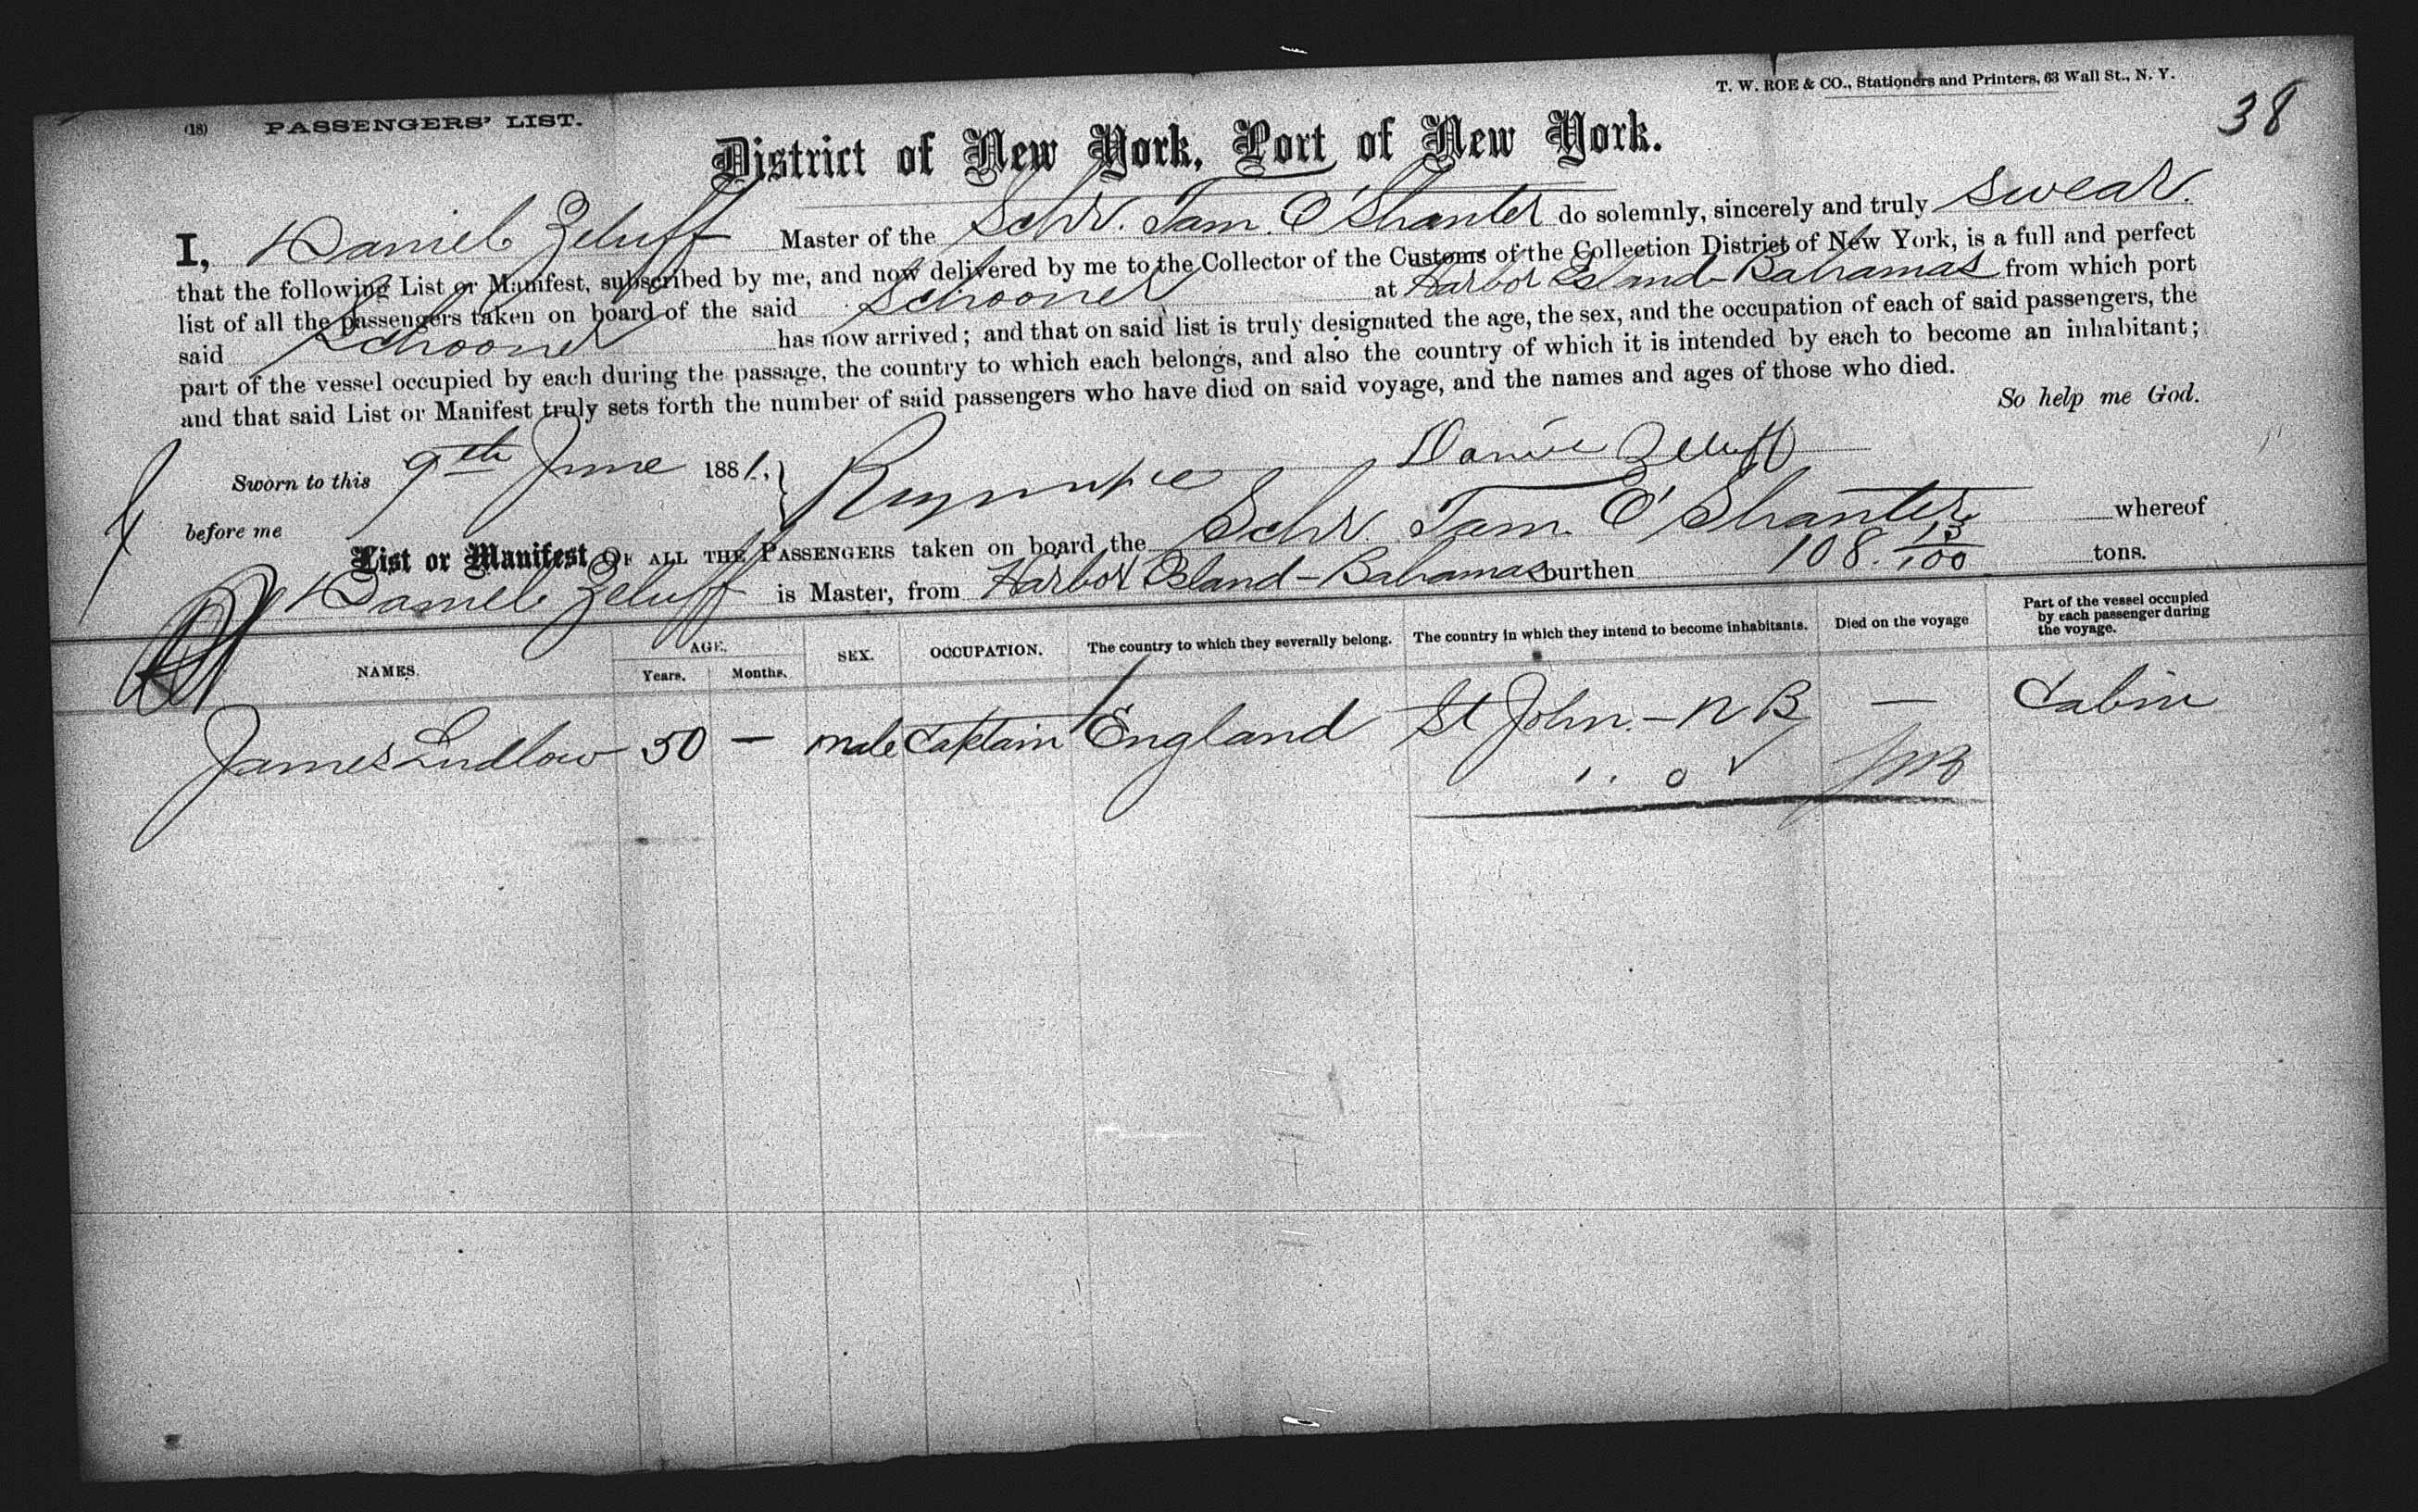 (18) PASSENGERS' LIST.
T. W. ROE & CO., Stationers and Printers, 63 Wall St., N. Y.
38
District of New York, Port of New York.
I, Daniel Zeluff Master of the Schr. Tam. O'Shanter do solemnly, sincerely and truly swear.
that the following List or Manifest, subscribed by me, and now delivered by me to the Collector of the Customs of the Collection District of New York, is a full and perfect
list of all the passengers taken on board of the said Schooner at Harbor Island - Bahamas from which port
said Schooner has now arrived; and that on said list is truly designated the age, the sex, and the occupation of each of said passengers, the
part of the vessel occupied by each during the passage, the country to which each belongs, and also the country of which it is intended by each to become an inhabitant;
and that said List or Manifest truly sets forth the number of said passengers who have died on said voyage, and the names and ages of those who died.
So help me God.
Sworn to this 9th June 1881, Daniel Zeluff
before me
List or Manifest OF ALL THE PASSENGERS taken on board the Schr. Tam. O'Shanter whereof
Daniel Zeluff is Master, from Harbor Island - Bahamas burthen 108. 13/100 tons.
NAMES. AGE. Years. Months. SEX. OCCUPATION. The country to which they severally belong. The country in which they intend to become inhabitants. Died on the voyage Part of the vessel occupied by each passenger during the voyage.
James Ludlow 50 — male Captain England St John. - N B — Cabin